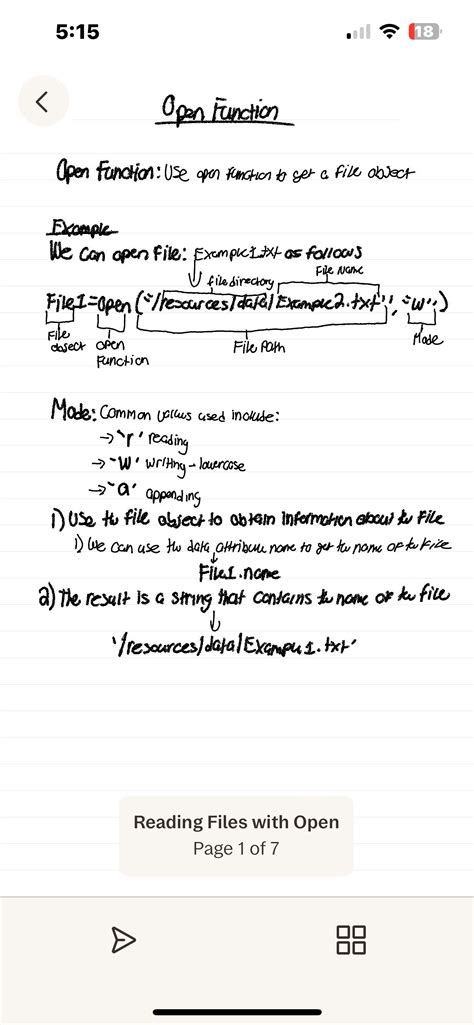 5:15
18
Open Function
Open Function: Use open function to get a file object
Example
We can open file: Example1.txt as follows
file directory
File Name
File1=open("/resources/data/Example2.txt", "w")
File object
open Function
File Path
Mode
Mode: Common values used include:
→ 'r' reading
→ "W" writing - lowercase
→ "a" appending
1) Use the file object to obtain information about the file
1) We can use the data attribute name to get the name of the file
File1.name
2) The result is a string that contains the name of the file
'/resources/data/Example1.txt'
Reading Files with Open
Page 1 of 7